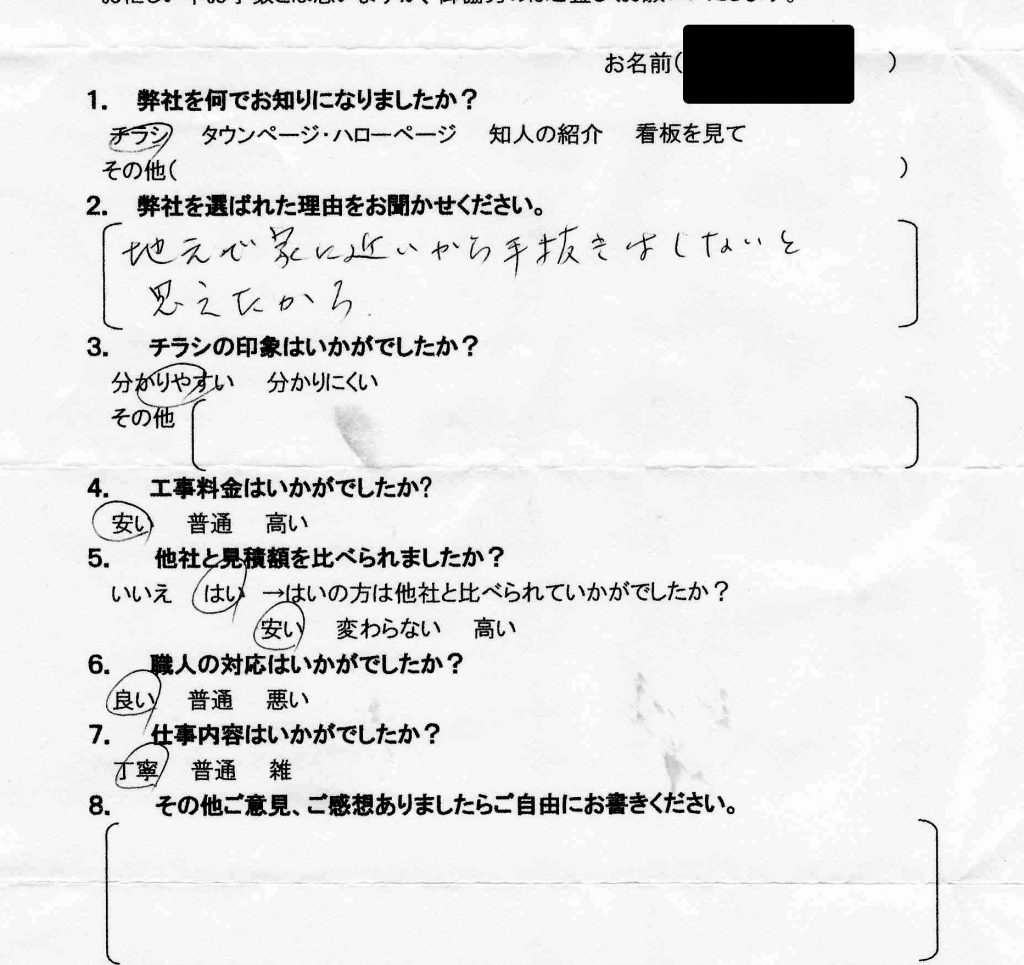 お忙しい中お手数とは思いますが、御協力のほど宜しくお願いいたします。
お名前( )
1. 弊社を何でお知りになりましたか？
チラシ タウンページ・ハローページ 知人の紹介 看板を見て
その他( )
2. 弊社を選ばれた理由をお聞かせください。
地元で家に近いから手抜きはしないと
思えたから.
3. チラシの印象はいかがでしたか？
分かりやすい 分かりにくい
その他
4. 工事料金はいかがでしたか?
安い 普通 高い
5. 他社と見積額を比べられましたか？
いいえ はい →はいの方は他社と比べられていかがでしたか？
安い 変わらない 高い
6. 職人の対応はいかがでしたか？
良い 普通 悪い
7. 仕事内容はいかがでしたか？
丁寧 普通 雑
8. その他ご意見、ご感想ありましたらご自由にお書きください。